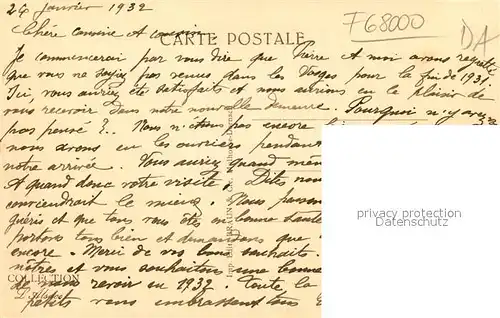 24 Janvier 1932
F68000
DA
Chère cousine et cousin
CARTE POSTALE
Je commencerai par vous dire que Pierre et moi avons regretté
que vous ne soyiez pas venus dans les Vosges pour la fin de 1931.
Ici, vous auriez été satisfaits et nous aurions eu le plaisir de
vous recevoir dans notre nouvelle demeure. Pourquoi n'y avez
pas pensé ?.. Nous n'étions pas encore
nous avons eu les ouvriers pendant
notre arrivée. Vous auriez quand même
A quand donc votre visite. Dites nous
conviendrait le mieux. Nous pensons
guéris et que tous vous êtes en bonne santé
portons tous bien et demandons que
encore. Merci de vos bons souhaits.
nôtres et vous souhaitons une bonne
COLLECTION
de nous revoir en 1932. Toute la
petits vous embrassent tous
privacy protection
www.ansichtskarten-center.de